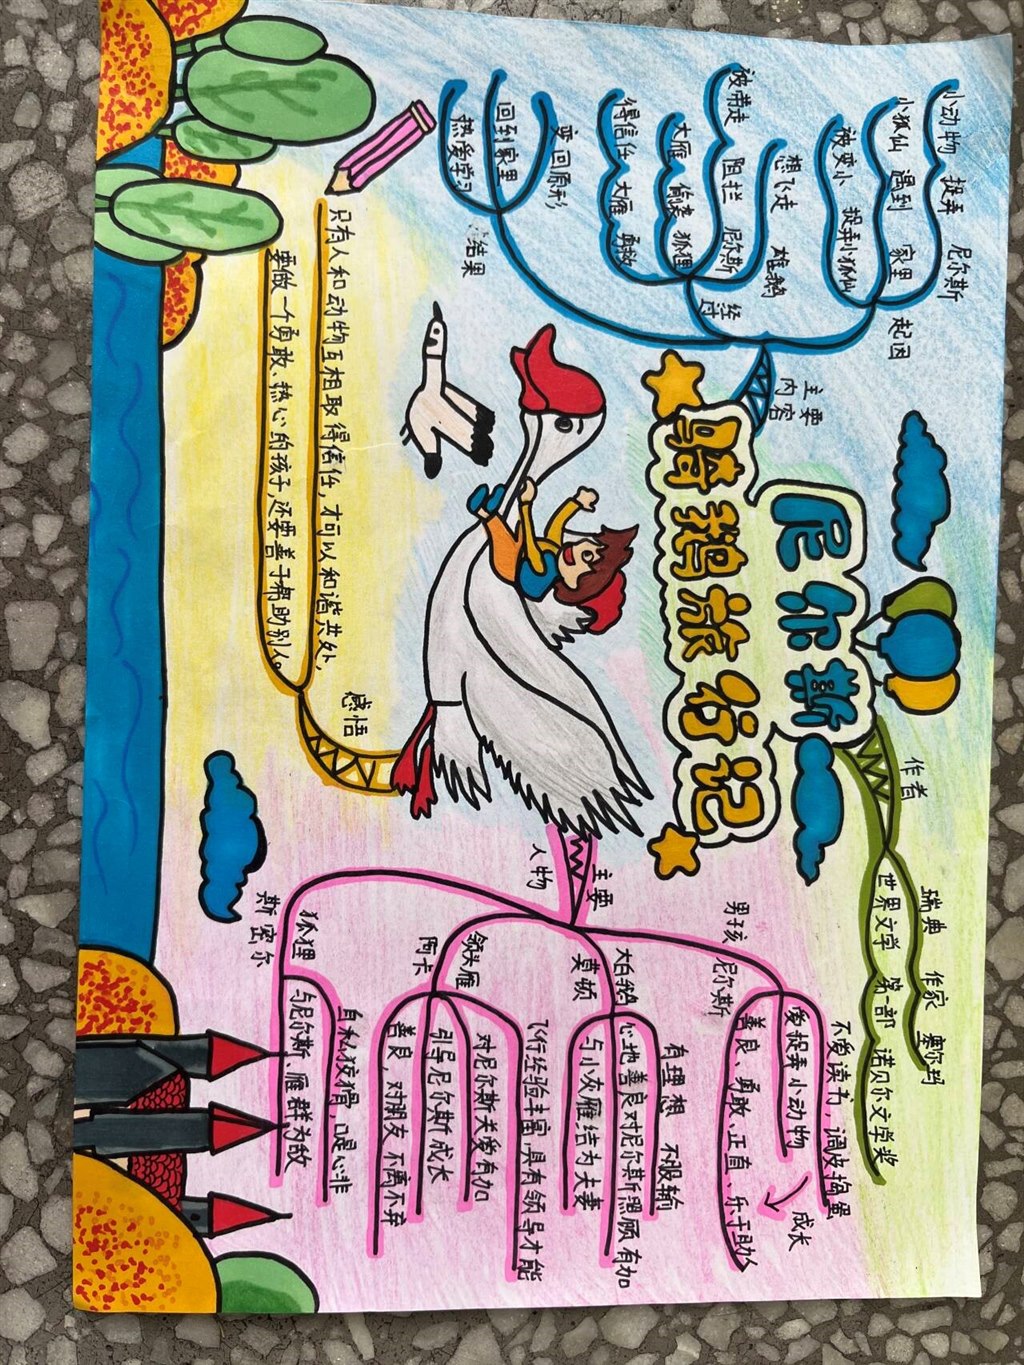 尼尔斯
骑鹅旅行记
主要
内容
起因
小动物 捉弄 尼尔斯
小狐仙 遇到 家里
被变小 捉弄小狐仙
经过
想飞走 雄鹅
被带走 阻拦 尼尔斯
大雁 偷袭 狐狸
得信任 大雁 勇救
结果
变回原形
回到家里
热爱学习
作者
瑞典 作家 塞尔玛
世界文学 第一部 诺贝尔文学奖
主要
人物
男孩
尼尔斯
不爱读书，调皮捣蛋
爱捉弄小动物
成长
善良、勇敢、正直、乐于助人
大白鹅
莫顿
有理想 不服输
心地善良对尼尔斯照顾有加
与小灰雁结为夫妻
领头雁
阿卡
飞行经验丰富，具有领导才能
对尼尔斯关爱有加
引导尼尔斯成长
善良，对朋友不离不弃
狐狸
斯密尔
自私狡猾，口是心非
与尼尔斯、雁群为敌
感悟
只有人和动物互相取得信任，才可以和谐共处，
要做一个勇敢、热心的孩子，还要善于帮助别人。